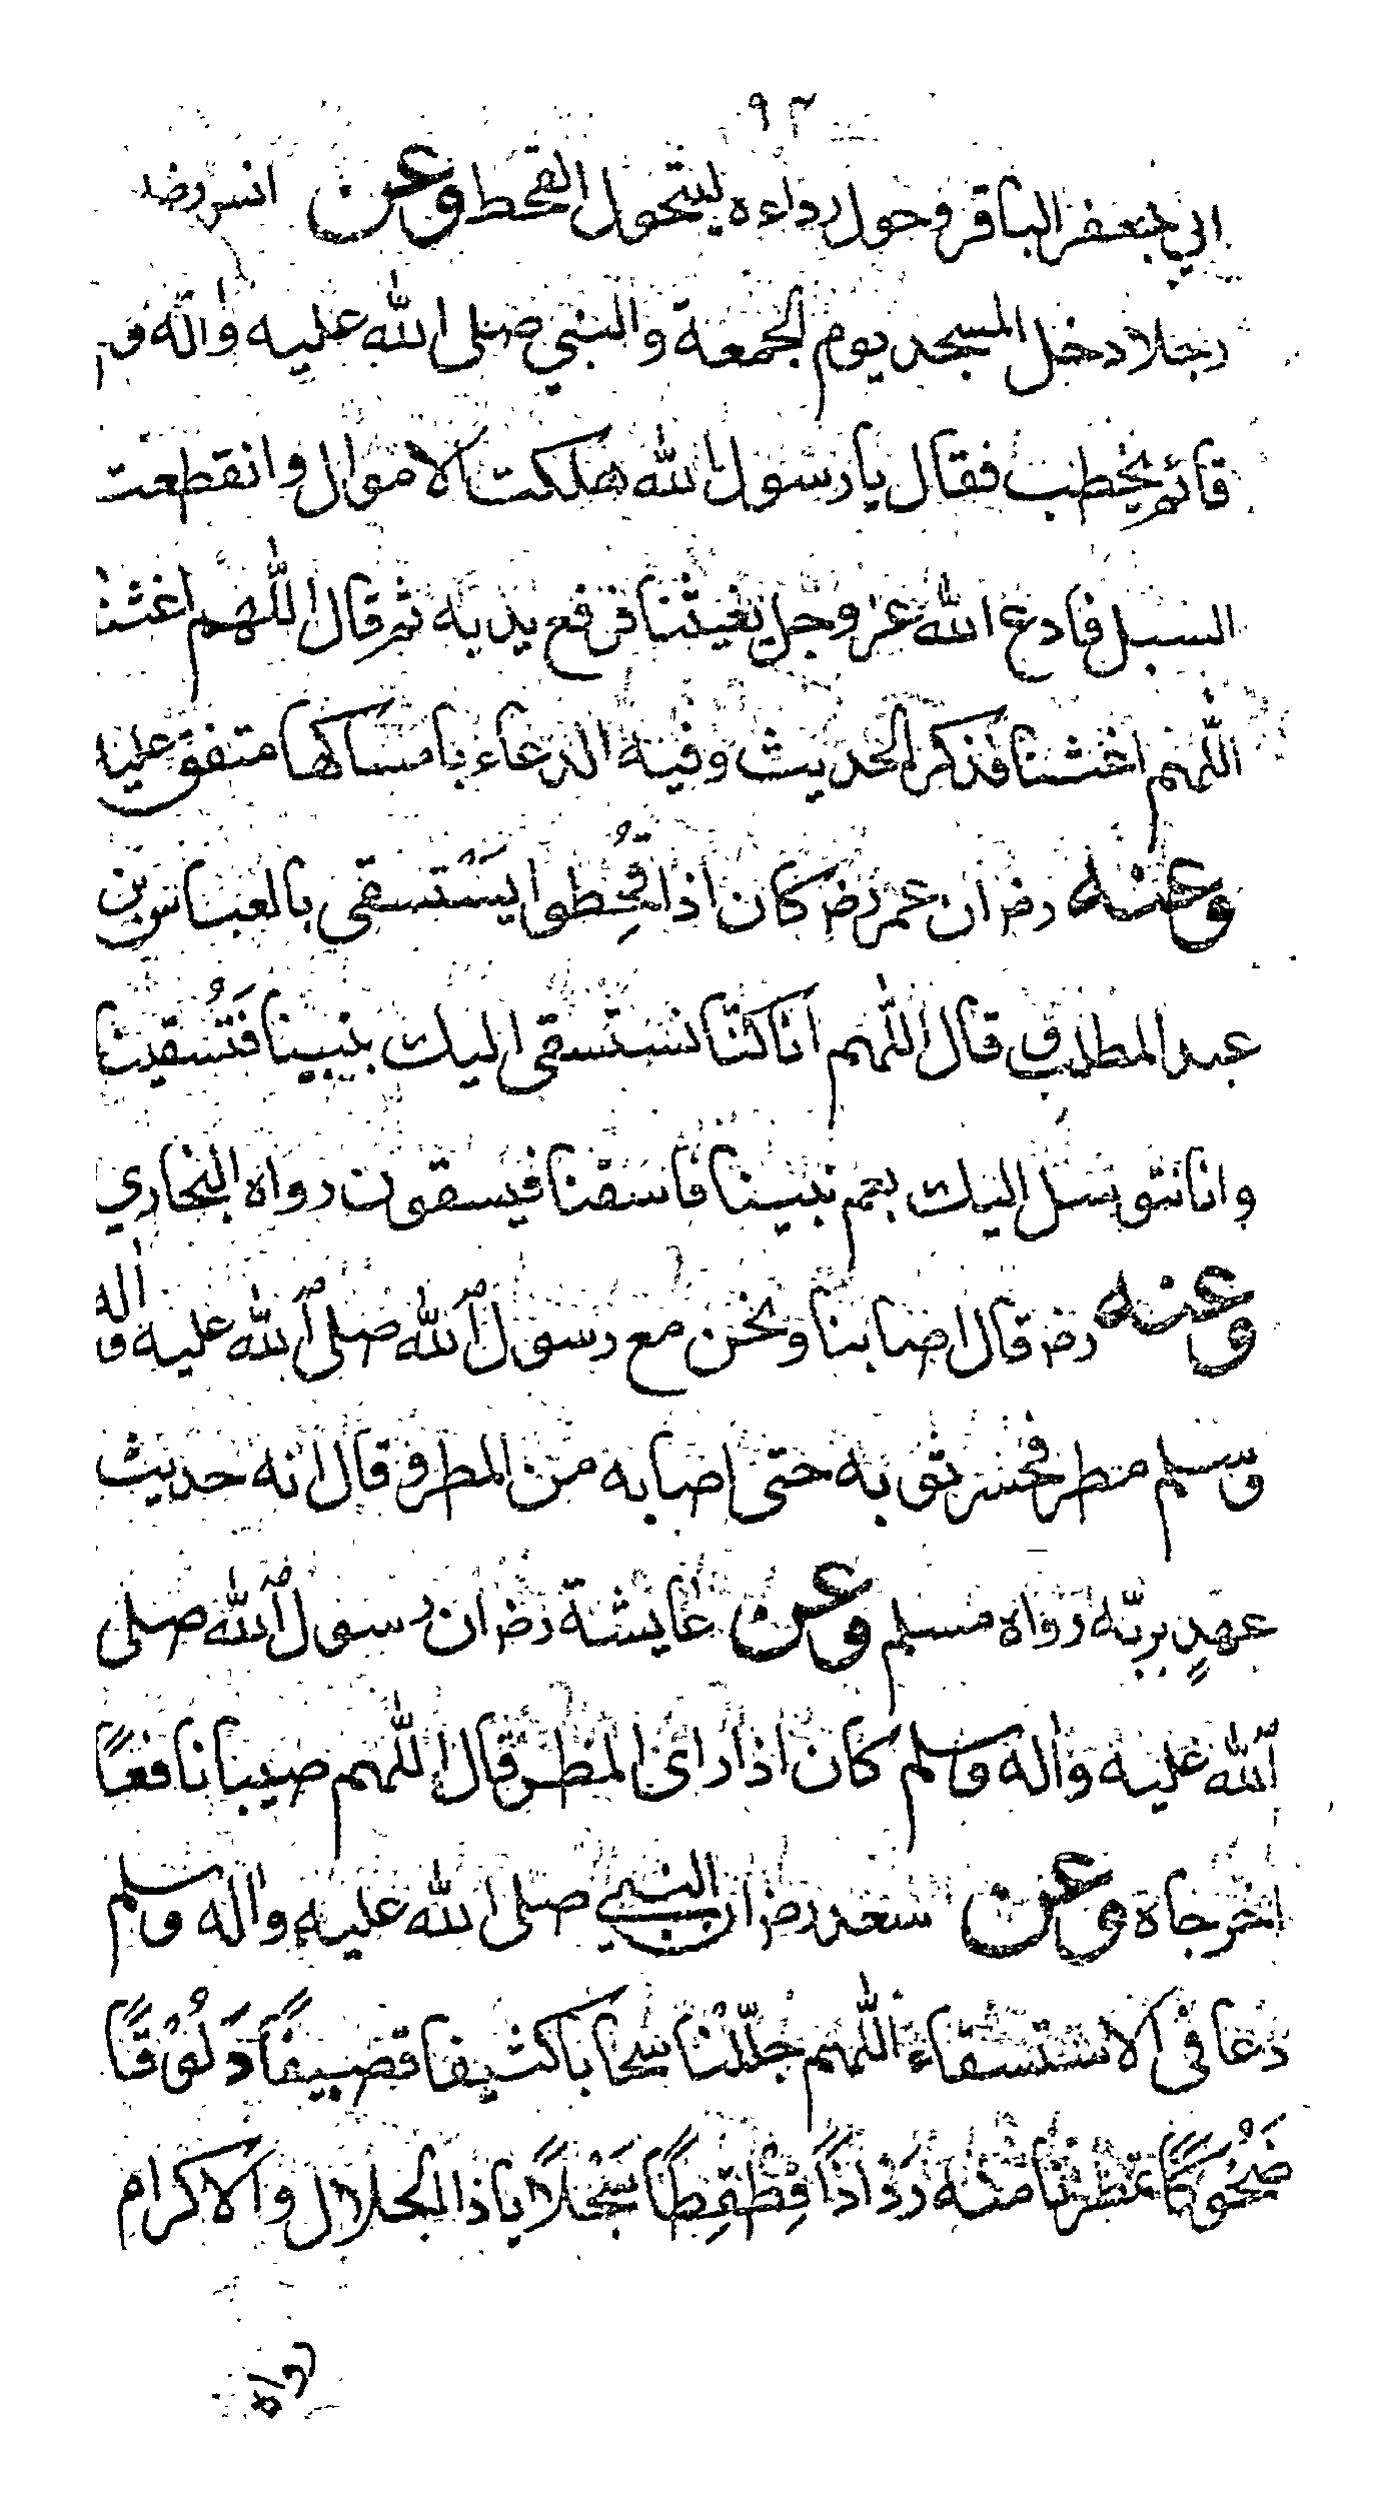 ٩٢
ابي جعفر الباقر وحول رداءه ليتحول القحط وعن انس رضـ
رجلا دخل المسجد يوم الجمعة والنبي صلى الله عليه واله و
قائم يخطب فقال يا رسول الله هلكت الاموال وانقطعت
السبل فادع الله عز وجل يغيثنا فرفع يديه ثم قال اللهم اغثنا
اللهم اغثنا فذكر الحديث وفيه الدعاء بامساكها متفق عليه
وعنه رضـ ان عمر رضـ كان اذا قُحِطوا يَسْتسقى بالعباس بن
عبد المطلب وقال اللهم انا كنّا نستسقى اليك بنبينا فَتُسْقينا
وانا نتوسل اليك بعم نبينا فاسقنا فيسقون رواه البخاري
وعنه رضـ قال اصابنا ونحن مع رسول الله صلى الله عليه واله
وسلم مطر فحسر ثوبه حتى اصابه من المطر وقال انه حديث
عهدٍ بربّه رواه مسلم وعن عايشة رضـ ان رسول الله صلى
الله عليه واله وسلم كان اذا راى المطر قال اللهم صيبا نافعًا
اخرجاه وعن سعد رضـ ان النبي صلى الله عليه واله وسلم
دعا في الاستسقاء اللهم جلّلنا سحابا كثيفا قصيفًا دَلُوْقًا
ضَحُوكًا تمطرنا منه رَذاذًا قِطْقِطًا سَجْلًا يا ذا الجلال والاكرام
رواه